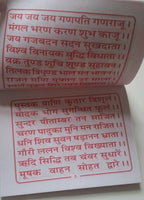 जय जय जय गणपति गणराजू।
मंगल भरण करण शुभ काजू॥
जय गजबदन सदन सुखदाता।
विश्व विनायक बुद्धि विधाता॥
वक्र तुण्ड शुचि शुण्ड सुहावन।
तिलक त्रिपुण्ड भाल मन
पुस्तक पाणि कुठार त्रिशूलं
मोदक भोग सुगन्धित फूलं
सुन्दर पीताम्बर तन साजित।
चरण पादुका मुनि मन राजित।
धनि शिव सुवन षडानन भ्राता।
गौरी ललन विश्व विख्याता॥
ऋद्धि सिद्धि तव चंवर सुधारे।
मूषक वाहन सोहत द्वारे॥